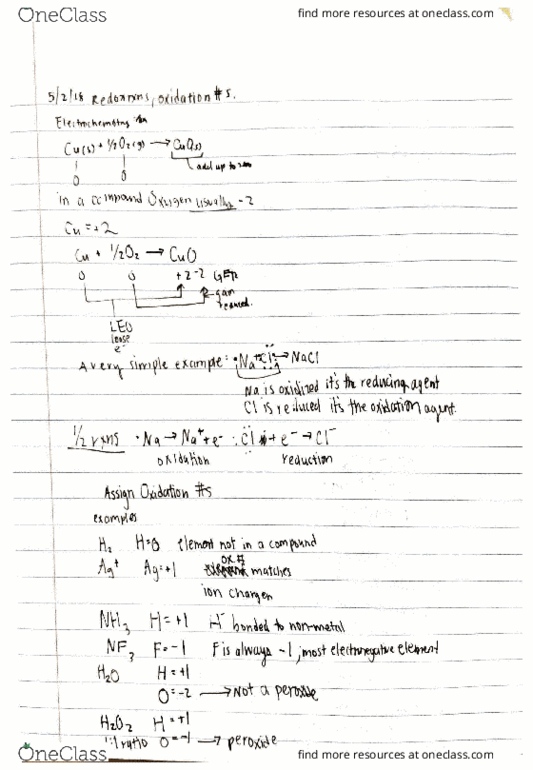 OneClass
find more resources at oneclass.com
5/2/18 Redox rxns, oxidation #s.
Electrochemistry
Cu(s) + ½O₂(g) → CuO(s)
add up to zero
0 0
in a compound Oxygen usually -2
Cu = +2
Cu + ½O₂ → CuO
0 0 +2 -2 GER
gain
reduced.
LEO
lose
e⁻
A very simple example: Na + Cl → NaCl
Na is oxidized it's the reducing agent
Cl is reduced it's the oxidation agent.
½ rxns ·Na → Na⁺ + e⁻ :Cl + e⁻ → Cl⁻
oxidation reduction
Assign Oxidation #s
examples
H₂ H=0 element not in a compound
Ag⁺ Ag=+1 ox.# matches
ion charge
NH₃ H=+1 H bonded to non-metal
NF₃ F=-1 F is always -1, most electronegative element
H₂O H=+1
O=-2 → Not a peroxide
H₂O₂ H=+1
1:1 ratio O=-1 → peroxide
OneClass
find more resources at oneclass.com